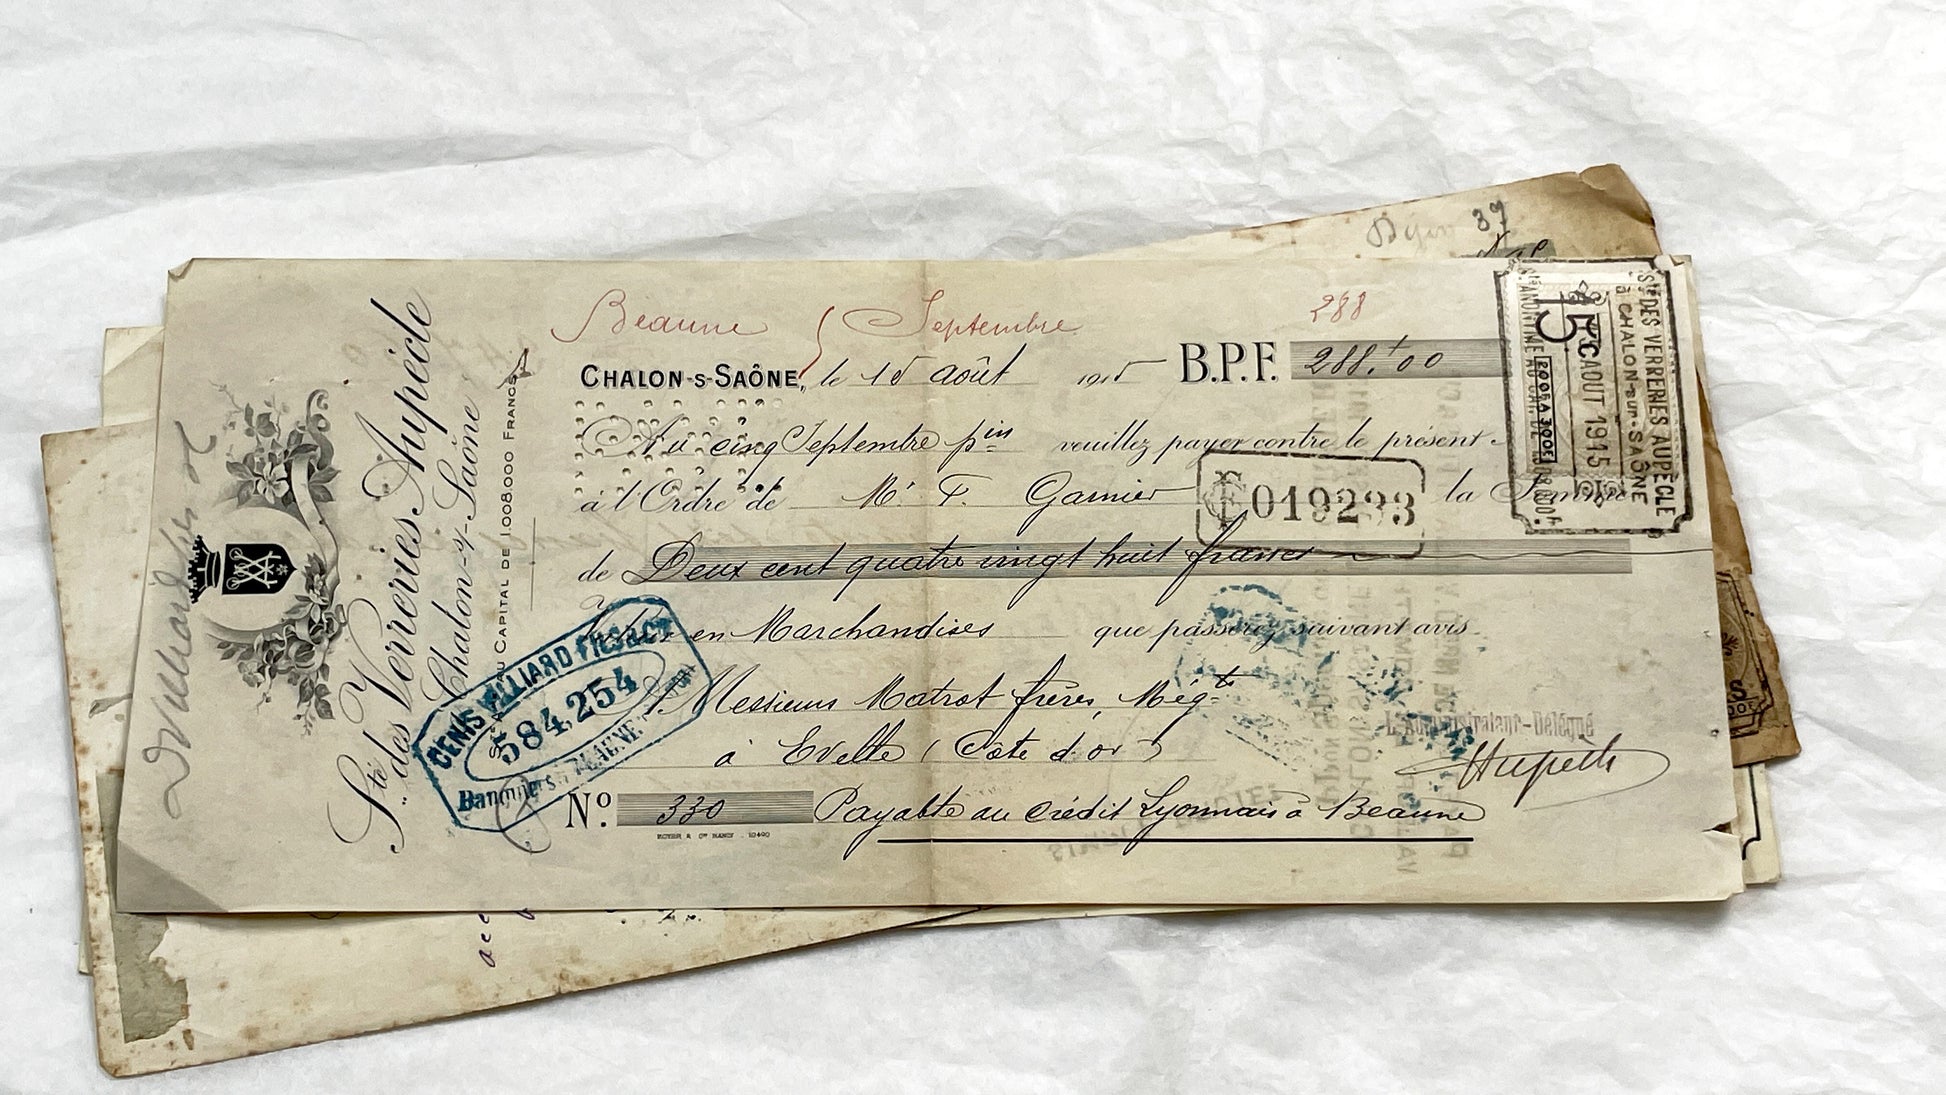 Dijon 37
Beaune 5 Septembre
288
CHALON-S-SAÔNE, le 15 août 1915 B.P.F. 288,00
Au cinq Septembre pin veuillez payer contre le présent
à l'Ordre de Mr F. Garnier la Somme
019233
de Deux cent quatre vingt huit francs
en Marchandises que passerez suivant avis
Messieurs Matrot frères, Nég-ts
à Evelle (Côte d'or)
No. 330 Payable au Crédit Lyonnais à Beaune
ROYER & Cie NANCY
L'Administrateur-Délégué
Aupècle
Sté des Verreries Aupècle
Chalon-s-Saône
AU CAPITAL DE 1.008.000 FRANCS
DENIS
584.254
Banquiers BEAUNE
Sté DES VERRERIES AUPÈCLE
à CHALON-sur-SAÔNE
15 AOUT 1915
15c
200 A 300F
Sté ANONYME AU CAP. DE 1.008.000f
acc